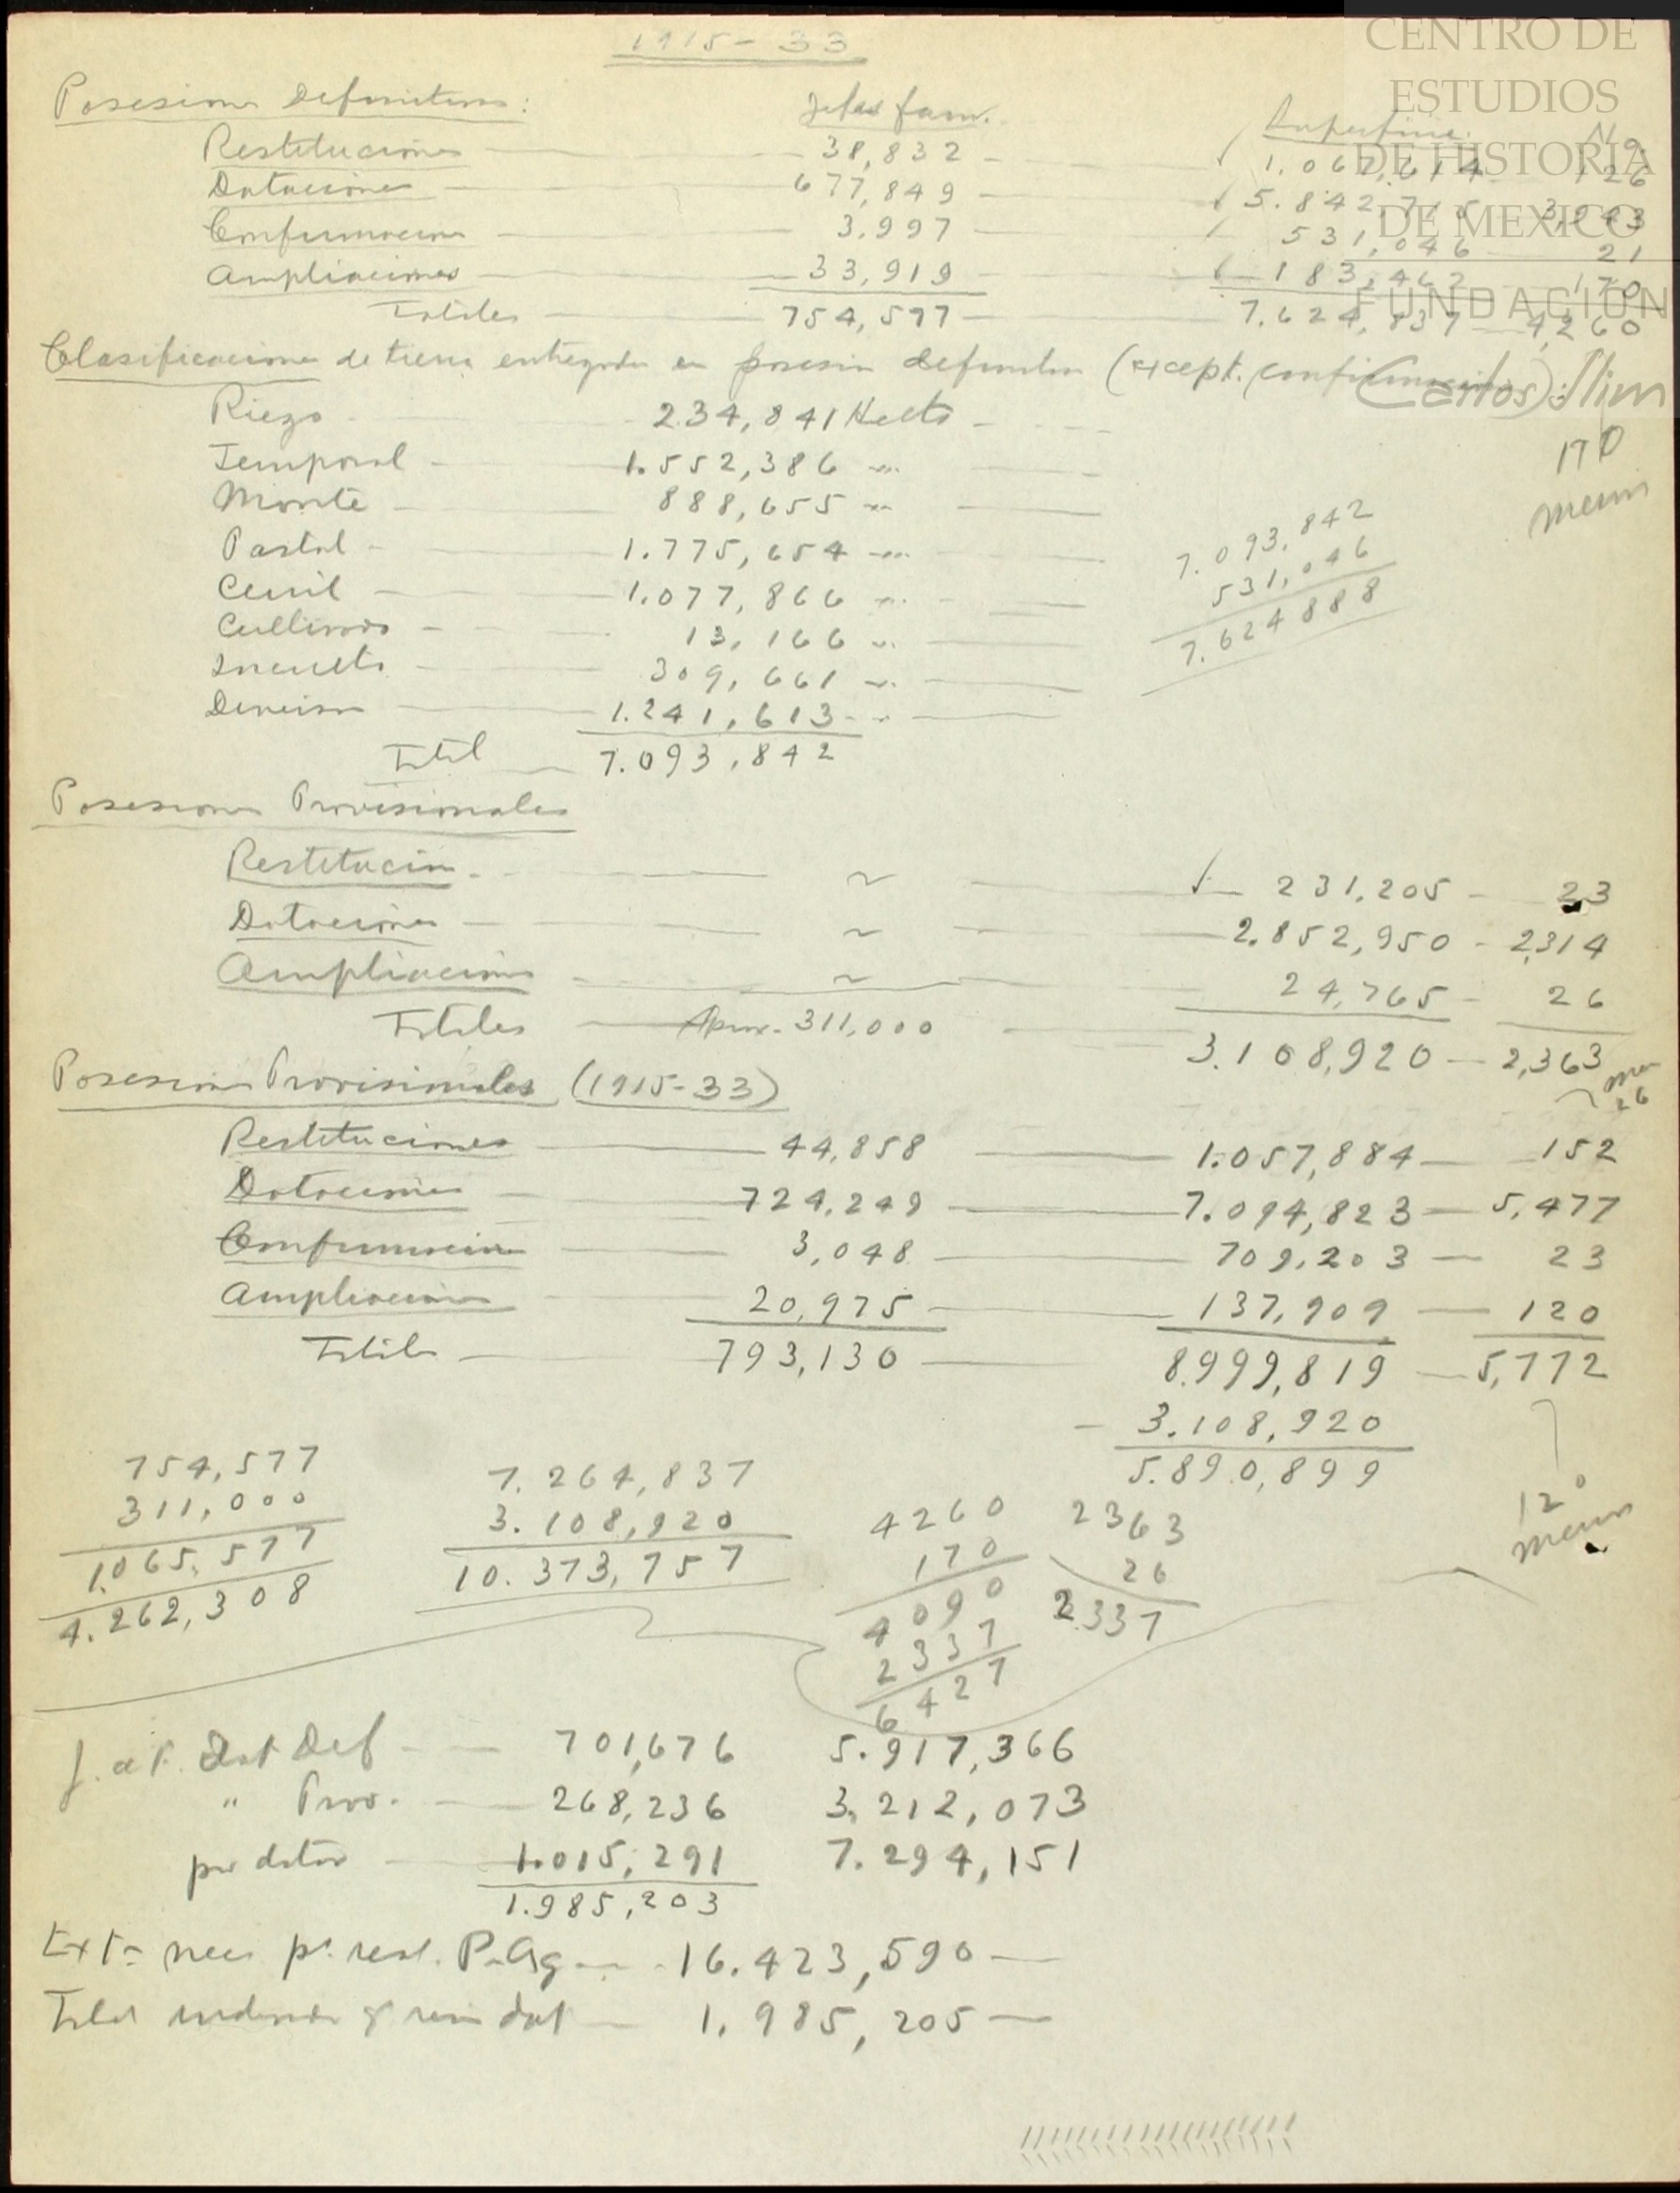 1915-33
Posesiones Definitivas: Jefes fam. Superficie. No.
Restituciones 38,832 1.067,614 126
Dotaciones 677,849 5.842,715 3,943
Confirmaciones 3,997 531,046 21
Ampliaciones 33,919 183,462 170
Totales 754,577 7.624,837 4,260
Clasificaciones de tierra entregada en posesion definitiva (except. confirmaciones):
Riego 234,841 Hects
Temporal 1.552,386 "
Monte 888,655 "
Pastal 1.775,654 "
Cerril 1.077,866 "
Cultivos 13,166 "
Inculto 309,661 "
Diversos 1.241,613 "
Total 7.093,842
170
menos
7.093,842
531,046
7.624888
Posesiones Provisionales
Restitucion 231,205 23
Dotaciones 2.852,950 2,314
Ampliaciones 24,765 26
Totales Aprox. 311,000 3.108,920 2,363
26
Posesiones Provisionales (1915-33)
Restituciones 44,858 1.057,884 152
Dotaciones 724,249 7.094,823 5,477
Confirmaciones 3,048 709,203 23
Ampliaciones 20,975 137,909 120
Total 793,130 8.999,819 5,772
- 3.108,920
5.890,899
120
menos
754,577
311,000
1.065,577
4.262,308
7.264,837
3.108,920
10.373,757
4260
170
4090
2337
6427
2363
26
2337
J. de f. Dot Def 701,676 5.917,366
" Prov. 268,236 3.212,073
por dotar 1.015,291 7.294,151
1.985,203
Extn nec pa resl. P. Ag 16.423,590
Total 1.985,205
CENTRO DE
ESTUDIOS
DE HISTORIA
DE MEXICO
FUNDACIÓN
Carlos Slim